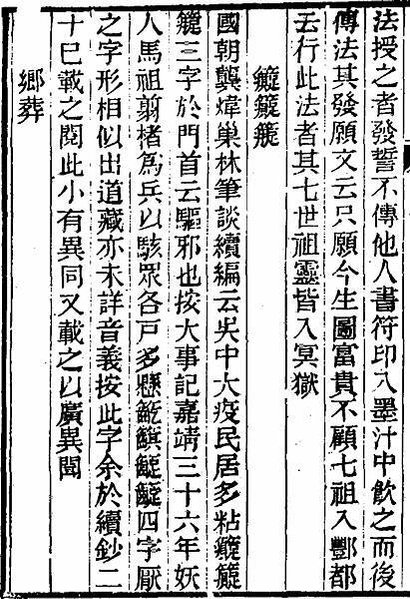 法授之者發誓不傳他人書符印入墨汁中飲之而後
傳法其發願文云只願今生圖富貴不顧七祖入酆都
云行此法者其七世祖靈皆入冥獄
國朝龔煒巢林筆談續編云吳中大疫民居多粘
三字於門首云驅邪也按大事記嘉靖三十六年妖
人馬祖翦楮為兵以駭眾各戶多懸四字厭
之字形相似出道藏亦未詳音義按此字余於續鈔二
十巳載之閱此小有異同又載之以廣異聞
鄉葬